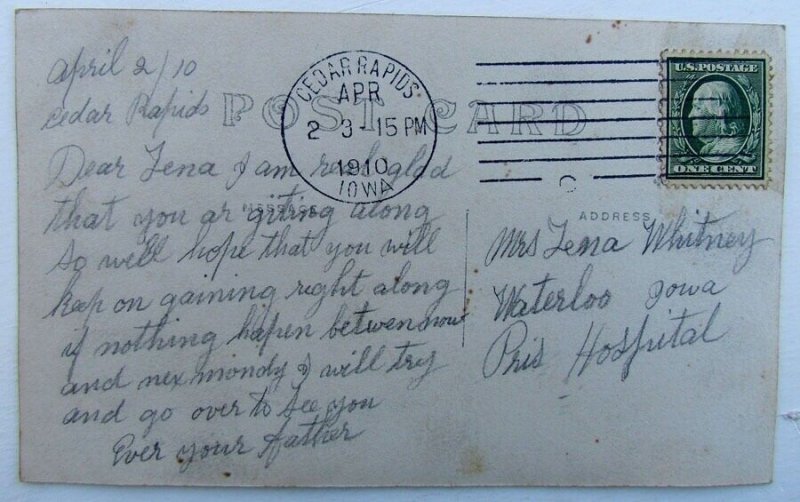 april 2/10
Cedar Rapids
POST CARD
CEDAR RAPIDS
APR
2 3-15 PM
1910
IOWA
U.S. POSTAGE
ONE CENT
MESSAGE
Dear Lena I am real glad
that you ar giting along
so well hope that you will
keep on gaining right along
if nothing hapen betwen now
and nex mondy I will try
and go over to see you
Ever your father
ADDRESS
Mrs Lena Whitney
Waterloo Iowa
Pris Hospital
C